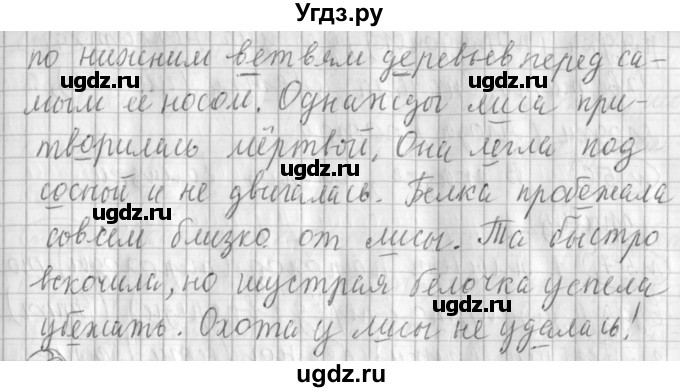 Угдз.ру
по нижним ветвям деревьев перед са-
мым её носом. Однажды лиса при-
творилась мёртвой. Она легла под
сосной и не двигалась. Белка пробежала
совсем близко от лисы. Та быстро
вскочила, но шустрая белочка успела
убежать. Охота у лисы не удалась!
ugdz.ru
ugdz.ru
ugdz.ru
ugdz.ru
ugdz.ru
ugdz.ru
ugdz.ru
ugdz.ru
ugdz.ru